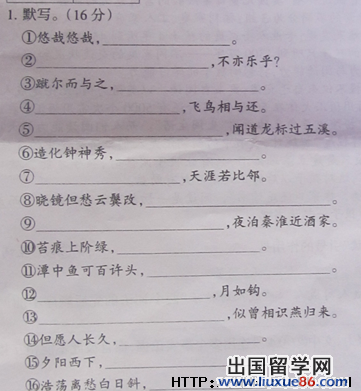 1. 默写。(16 分)
①悠哉悠哉,____________。
②____________,不亦乐乎?
③蹴尔而与之,____________。
④____________,飞鸟相与还。
⑤____________,闻道龙标过五溪。
⑥造化钟神秀,____________。
⑦____________,天涯若比邻。
⑧晓镜但愁云鬓改,____________。
⑨____________,夜泊秦淮近酒家。
⑩苔痕上阶绿,____________。
⑪潭中鱼可百许头,____________。
⑫____________,月如钩。
⑬____________,似曾相识燕归来。
⑭但愿人长久,____________。
⑮夕阳西下,____________
⑯浩荡离愁白日斜,
出国留学网
HTTP:www.liuxue86.com